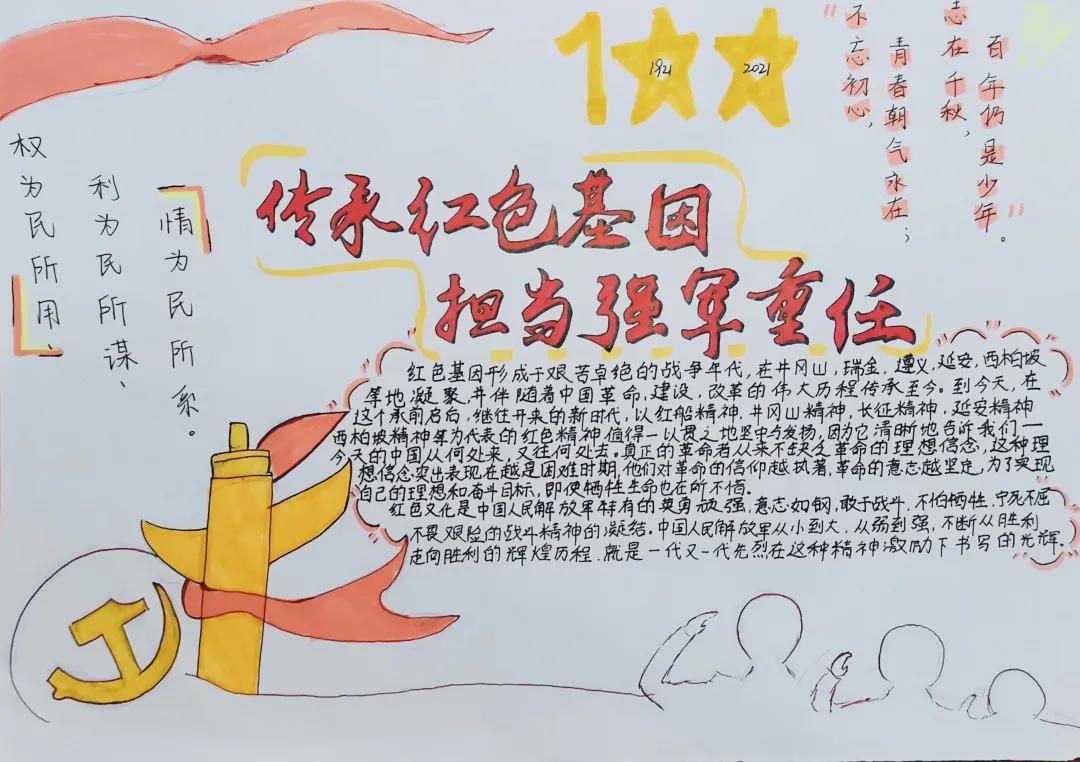 1921
2021
“不忘初心，
青春朝气永在；
志在千秋，
百年仍是少年”。
传承红色基因
担当强军重任
权为民所用、
利为民所谋、
情为民所系。
红色基因形成于艰苦卓绝的战争年代，在井冈山，瑞金，遵义，延安，西柏坡
等地凝聚，并伴随着中国革命，建设，改革的伟大历程传承至今。到今天，在
这个承前启后，继往开来的新时代，以红船精神，井冈山精神，长征精神，延安精神
西柏坡精神等为代表的红色精神，值得一以贯之地坚守与发扬，因为它清晰地告诉我们一
今天的中国从何处来，又往何处去。真正的革命者从来不缺乏革命的理想信念，这种理
想信念突出表现在越是困难时期，他们对革命的信仰越执著，革命的意志越坚定，为了实现
自己的理想和奋斗目标，即使牺牲生命也在所不惜。
红色文化是中国人民解放军特有的英勇顽强，意志如钢，敢于战斗，不怕牺牲，宁死不屈
不畏艰险的战斗精神的凝结。中国人民解放军从小到大，从弱到强，不断从胜利
走向胜利的辉煌历程，就是一代又一代先烈在这种精神激励下书写的光辉.